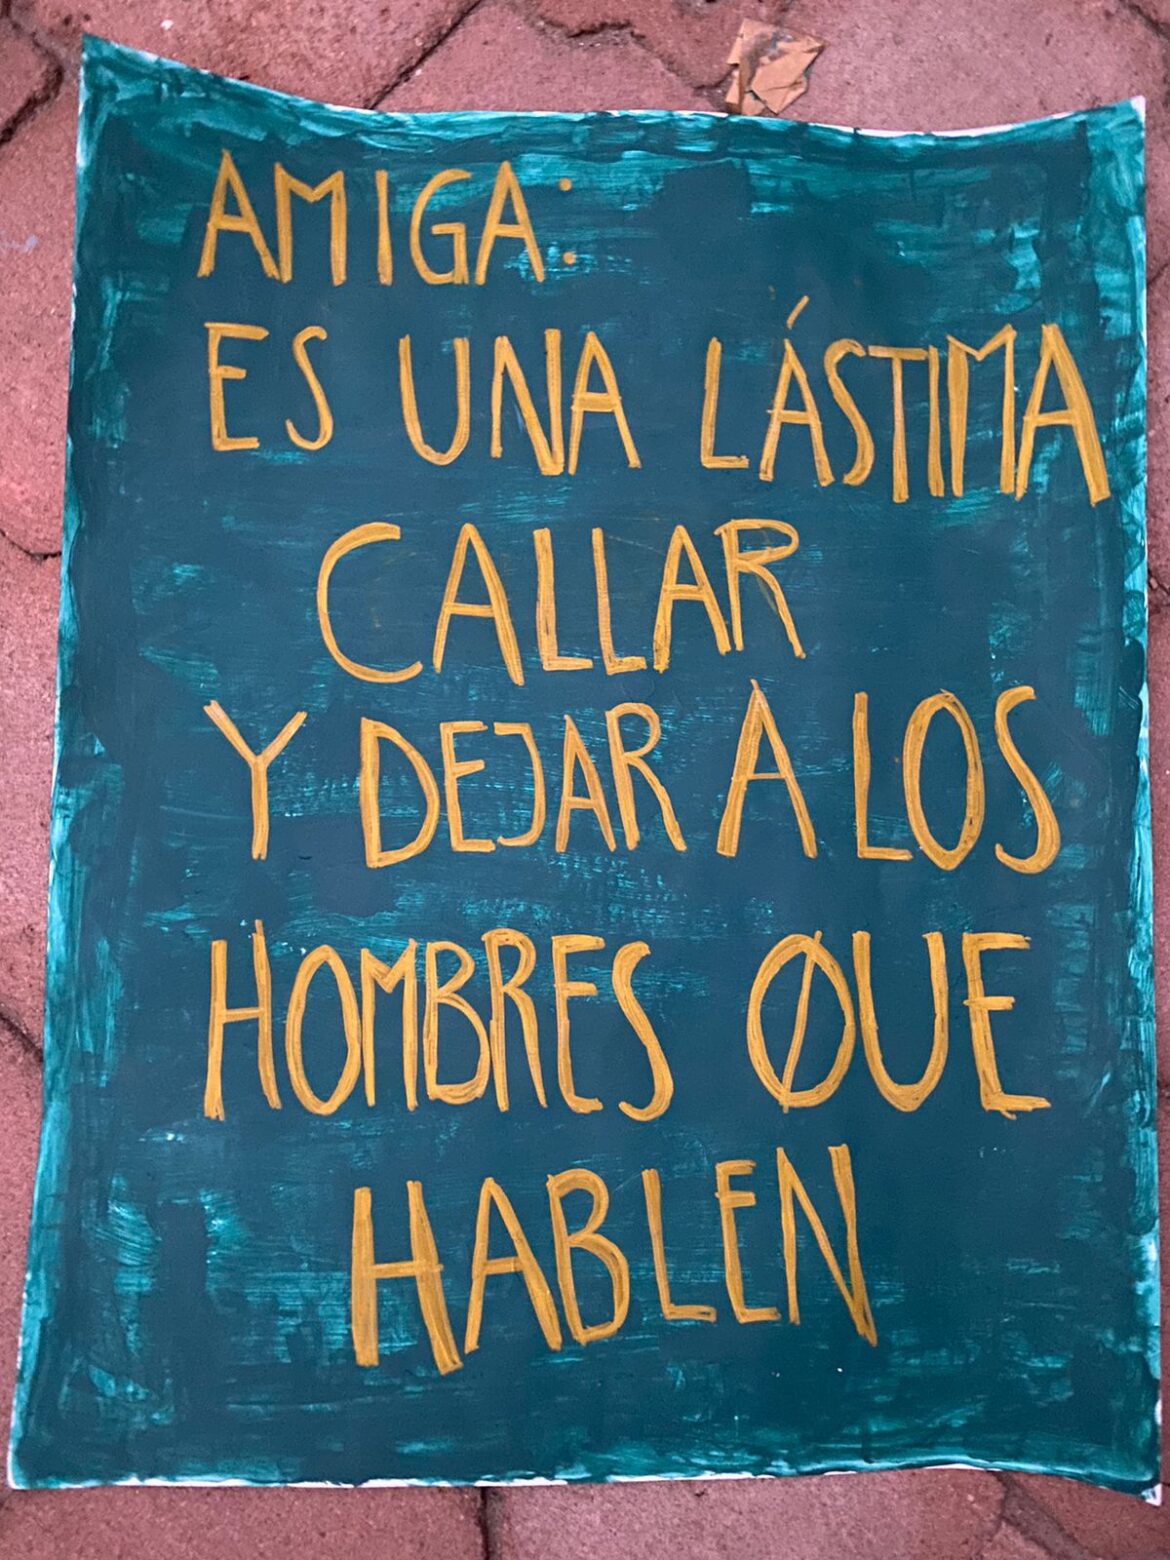 AMIGA:
ES UNA LÁSTIMA
CALLAR
Y DEJAR A LOS
HOMBRES QUE
HABLEN